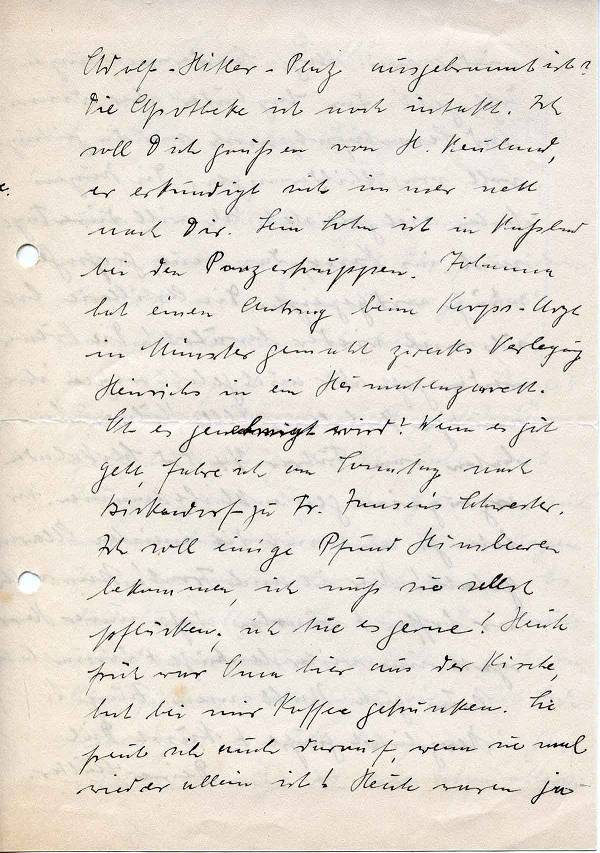 Adolf-Hitler-Platz ausgebrannt ist?
Die Apotheke ist noch intakt. Ich
soll Dich grüßen von H.
er erkundigt sich immer nett
nach Dir. Sein Sohn ist in Rußland
bei den Panzertruppen. Johanna
hat einen Antrag beim Korps-Arzt
in Münster gemacht zwecks Verlegung
Heinrichs in ein Heimatlazarett.
Ob es genehmigt wird? Wenn es gut
geht, fahre ich am Sonntag nach
zu Fr. Jansens Schwester.
Ich soll einige Pfund Himbeeren
bekommen, ich muß sie selbst
pflücken, ich tue es gerne! Heute
früh war Oma hier aus der Kirche,
hat bei mir Kaffee getrunken. Sie
freut sich auch darauf, wenn sie mal
wieder allein ist! Heute waren ja